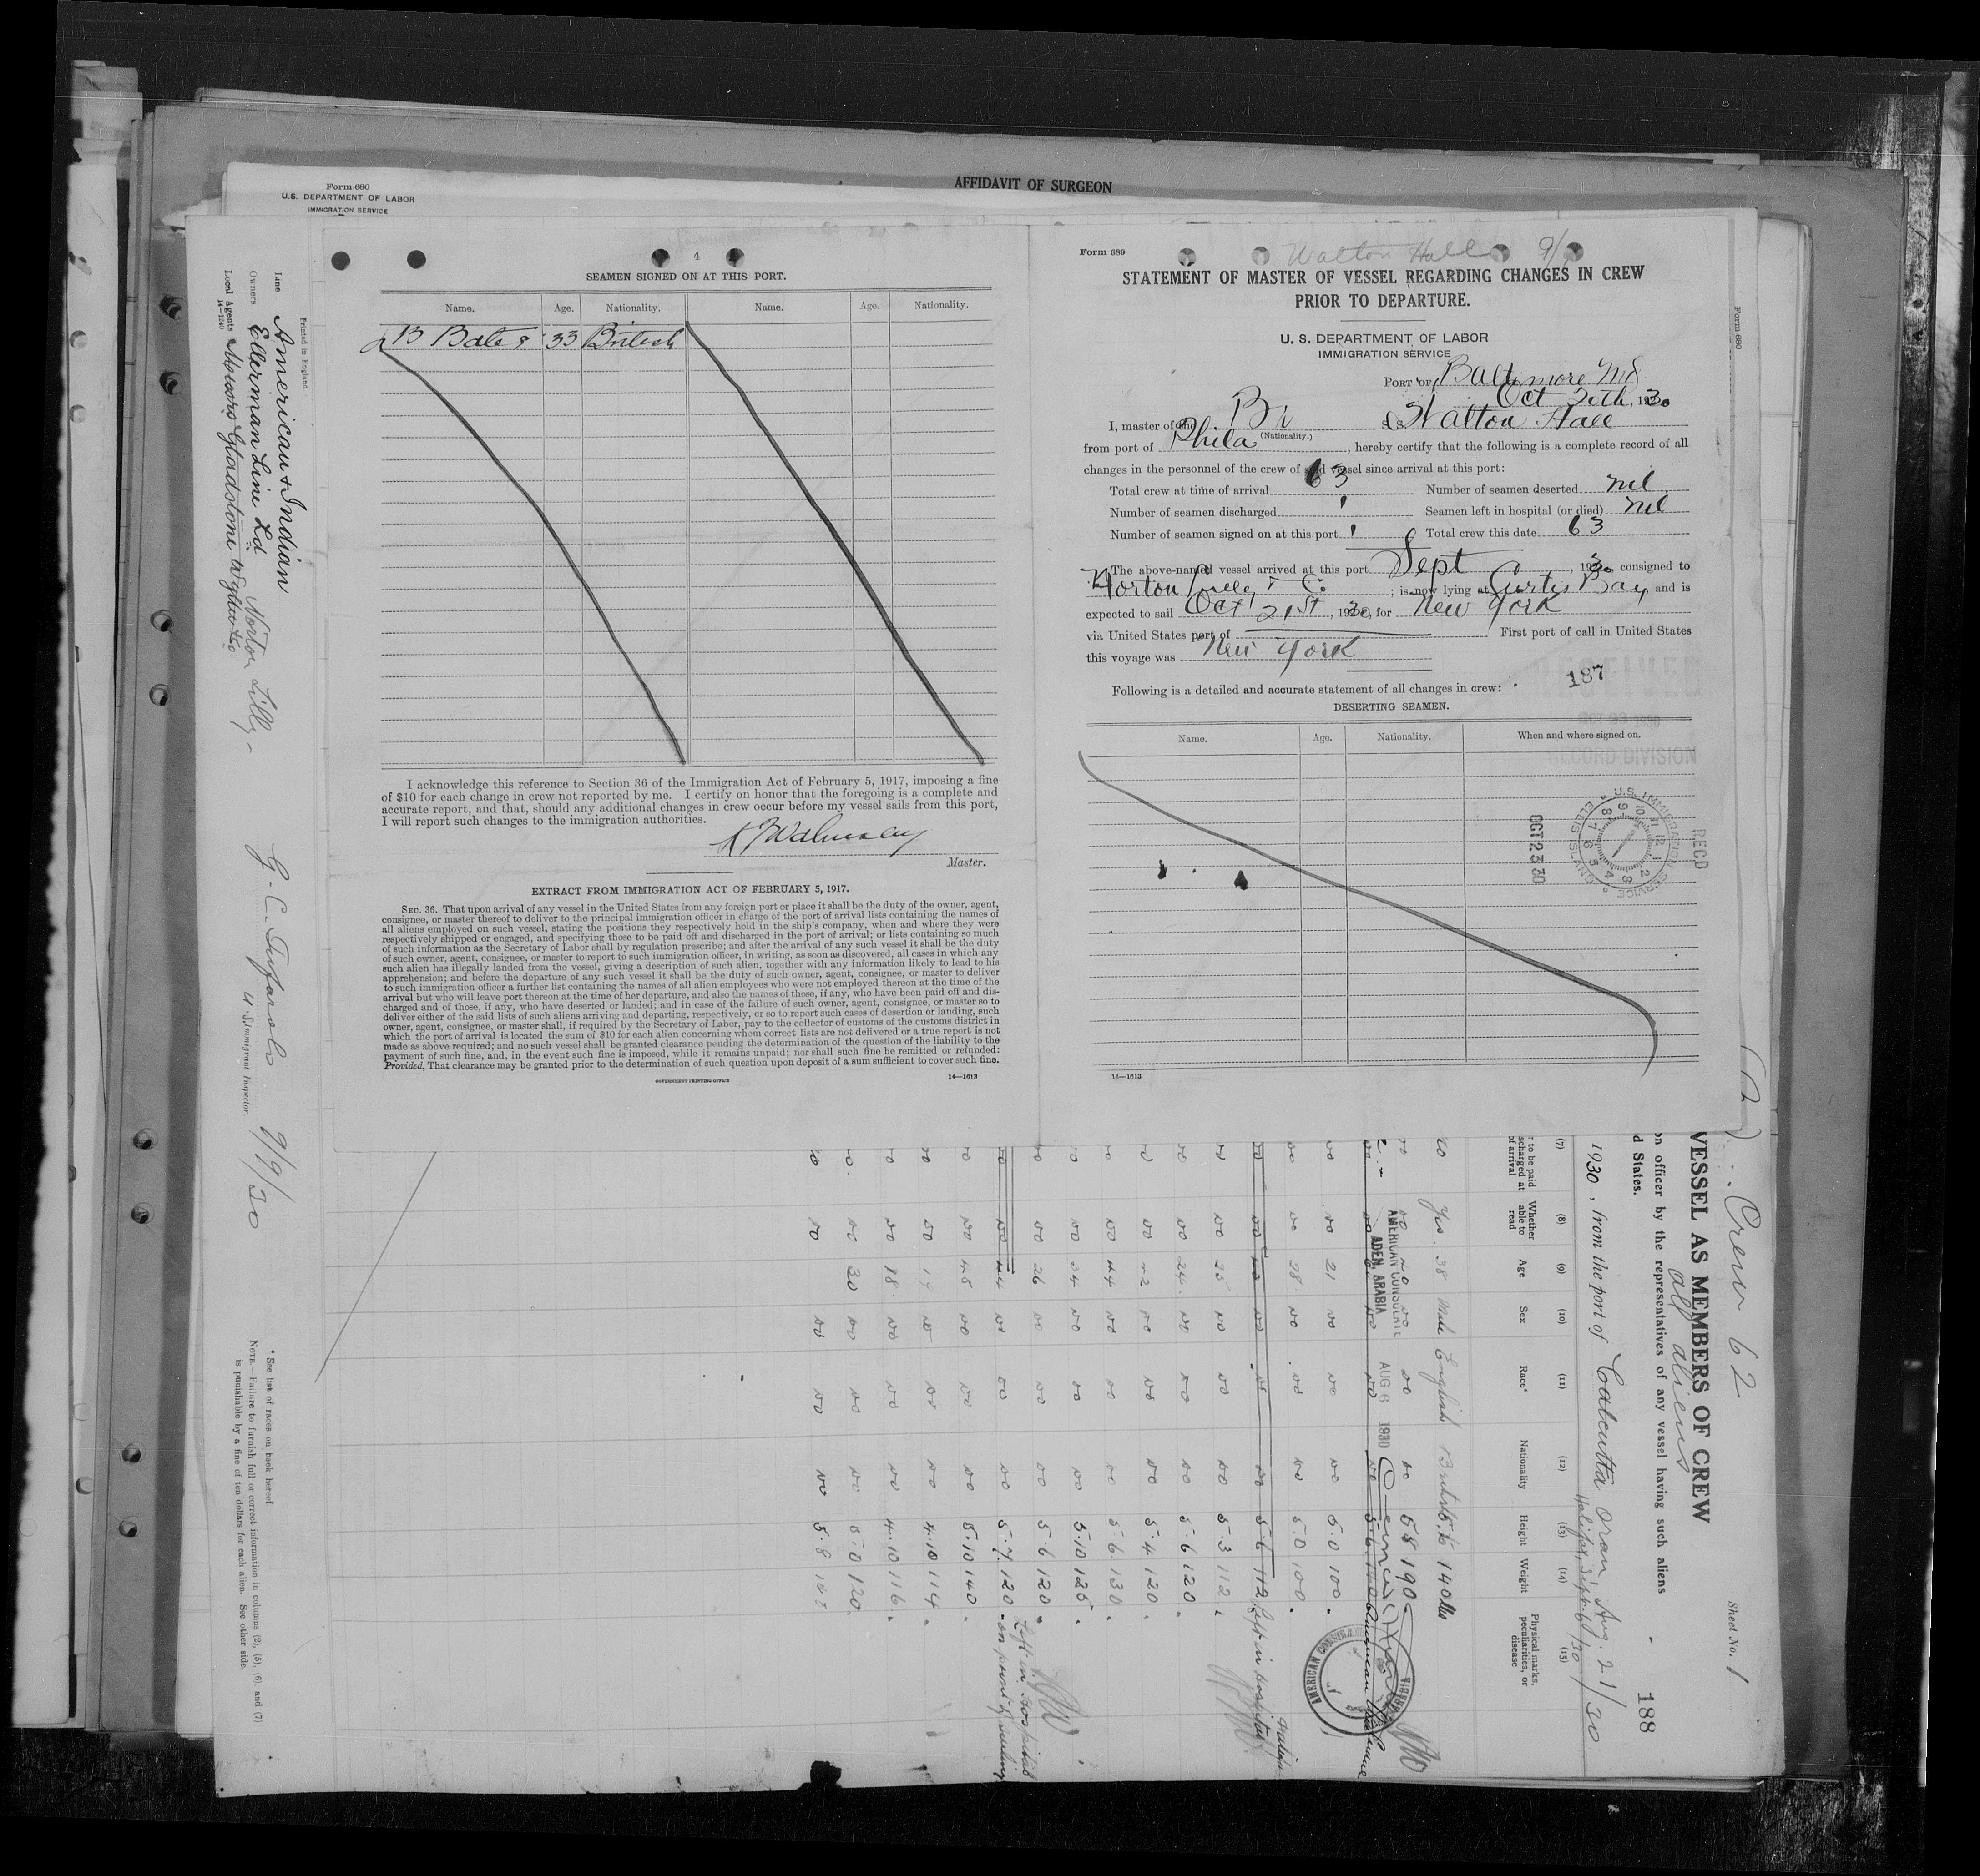 Form 680
U.S. DEPARTMENT OF LABOR
IMMIGRATION SERVICE
AFFIDAVIT OF SURGEON
4
SEAMEN SIGNED ON AT THIS PORT.
Name. Age. Nationality. Name. Age. Nationality.
B Bates 33 British
I acknowledge this reference to Section 36 of the Immigration Act of February 5, 1917, imposing a fine
of $10 for each change in crew not reported by me. I certify on honor that the foregoing is a complete and
accurate report, and that, should any additional changes in crew occur before my vessel sails from this port,
I will report such changes to the immigration authorities.
Master.
EXTRACT FROM IMMIGRATION ACT OF FEBRUARY 5, 1917.
SEC. 36. That upon arrival of any vessel in the United States from any foreign port or place it shall be the duty of the owner, agent,
consignee, or master thereof to deliver to the principal immigration officer in charge of the port of arrival lists containing the names of
all aliens employed on such vessel, stating the positions they respectively hold in the ship's company, when and where they were
respectively shipped or engaged, and specifying those to be paid off and discharged in the port of arrival; or lists containing so much
of such information as the Secretary of Labor shall by regulation prescribe; and after the arrival of any such vessel it shall be the duty
of such owner, agent, consignee, or master to report to such immigration officer, in writing, as soon as discovered, all cases in which any
such alien has illegally landed from the vessel, giving a description of such alien, together with any information likely to lead to his
apprehension; and before the departure of any such vessel it shall be the duty of such owner, agent, consignee, or master to deliver
to such immigration officer a further list containing the names of all alien employees who were not employed thereon at the time of the
arrival but who will leave port thereon at the time of her departure, and also the names of those, if any, who have been paid off and dis-
charged and of those, if any, who have deserted or landed; and in case of the failure of such owner, agent, consignee, or master so to
deliver either of the said lists of such aliens arriving and departing, respectively, or so to report such cases of desertion or landing, such
owner, agent, consignee, or master shall, if required by the Secretary of Labor, pay to the collector of customs of the customs district in
which the port of arrival is located the sum of $10 for each alien concerning whom correct lists are not delivered or a true report is not
made as above required; and no such vessel shall be granted clearance pending the determination of the question of the liability to the
payment of such fine, and, in the event such fine is imposed, while it remains unpaid; nor shall such fine be remitted or refunded:
Provided, That clearance may be granted prior to the determination of such question upon deposit of a sum sufficient to cover such fine.
GOVERNMENT PRINTING OFFICE 14—1613
Form 689 Walton Hall
STATEMENT OF MASTER OF VESSEL REGARDING CHANGES IN CREW
PRIOR TO DEPARTURE.
U. S. DEPARTMENT OF LABOR
IMMIGRATION SERVICE
PORT OF Baltimore Md
Oct 20th, 1930
I, master of the Br S.S. Walton Hall
(Nationality.)
from port of Phila, hereby certify that the following is a complete record of all
changes in the personnel of the crew of said vessel since arrival at this port:
Total crew at time of arrival 63 Number of seamen deserted nil
Number of seamen discharged 1 Seamen left in hospital (or died) nil
Number of seamen signed on at this port 1 Total crew this date 63
The above-named vessel arrived at this port Sept, 1930 consigned to
Norton Lilly & Co; is now lying at Curtis Bay, and is
expected to sail Oct 21st, 1930, for New York
via United States port of First port of call in United States
this voyage was New York
187
Following is a detailed and accurate statement of all changes in crew:
DESERTING SEAMEN.
Name. Age. Nationality. When and where signed on.
RECEIVED
RECORD DIVISION
REC'D
OCT 23 30
U.S. IMMIGRATION SERVICE
ELLIS ISLAND
14—1613
Form 680
Printed in England
Line American & Indian
Owners Ellerman Line Ld
Local Agents Messrs Gladstone Wyllie & Co
Norton Lilly
14—1240
U.S. Immigrant Inspector.
9/9/30
* See list of races on back hereof.
NOTE.—Failure to furnish full or correct information in columns (2), (5), (6), and (7)
is punishable by a fine of ten dollars for each alien. See other side.
Crew 62
Sheet No. 1
VESSEL AS MEMBERS OF CREW
all aliens
on officer by the representatives of any vessel having such aliens
d States.
188
1930, from the port of Calcutta Oran, Aug. 21/30
Halifax, Sept. 6/30
(7) (8) (9) (10) (11) (12) (13) (14) (15)
to be paid
discharged at
of arrival
Whether able to read Age Sex Race* Nationality Height Weight Physical marks, peculiarities, or disease
Yes 38 Male English British 5.6 140 lbs
AMERICAN CONSULATE
ADEN, ARABIA
AUG 6 1930
do 21 do do do 5.0 100
do 28 do do do 5.0 100
Left in hospital
do 25 do do do 5.3 112
do 24 do do do 5.6 120
do 42 do do do 5.4 120
do 44 do do do 5.6 130
do 34 do do do 5.10 125
do 26 do do do 5.6 120
Left in Hospital
do 44 do do do 5.7 120
do 45 do do do 5.10 140
do 17 do do do 4.10 114
do 18 do do do 4.10 116
do 30 do do do 5.0 120